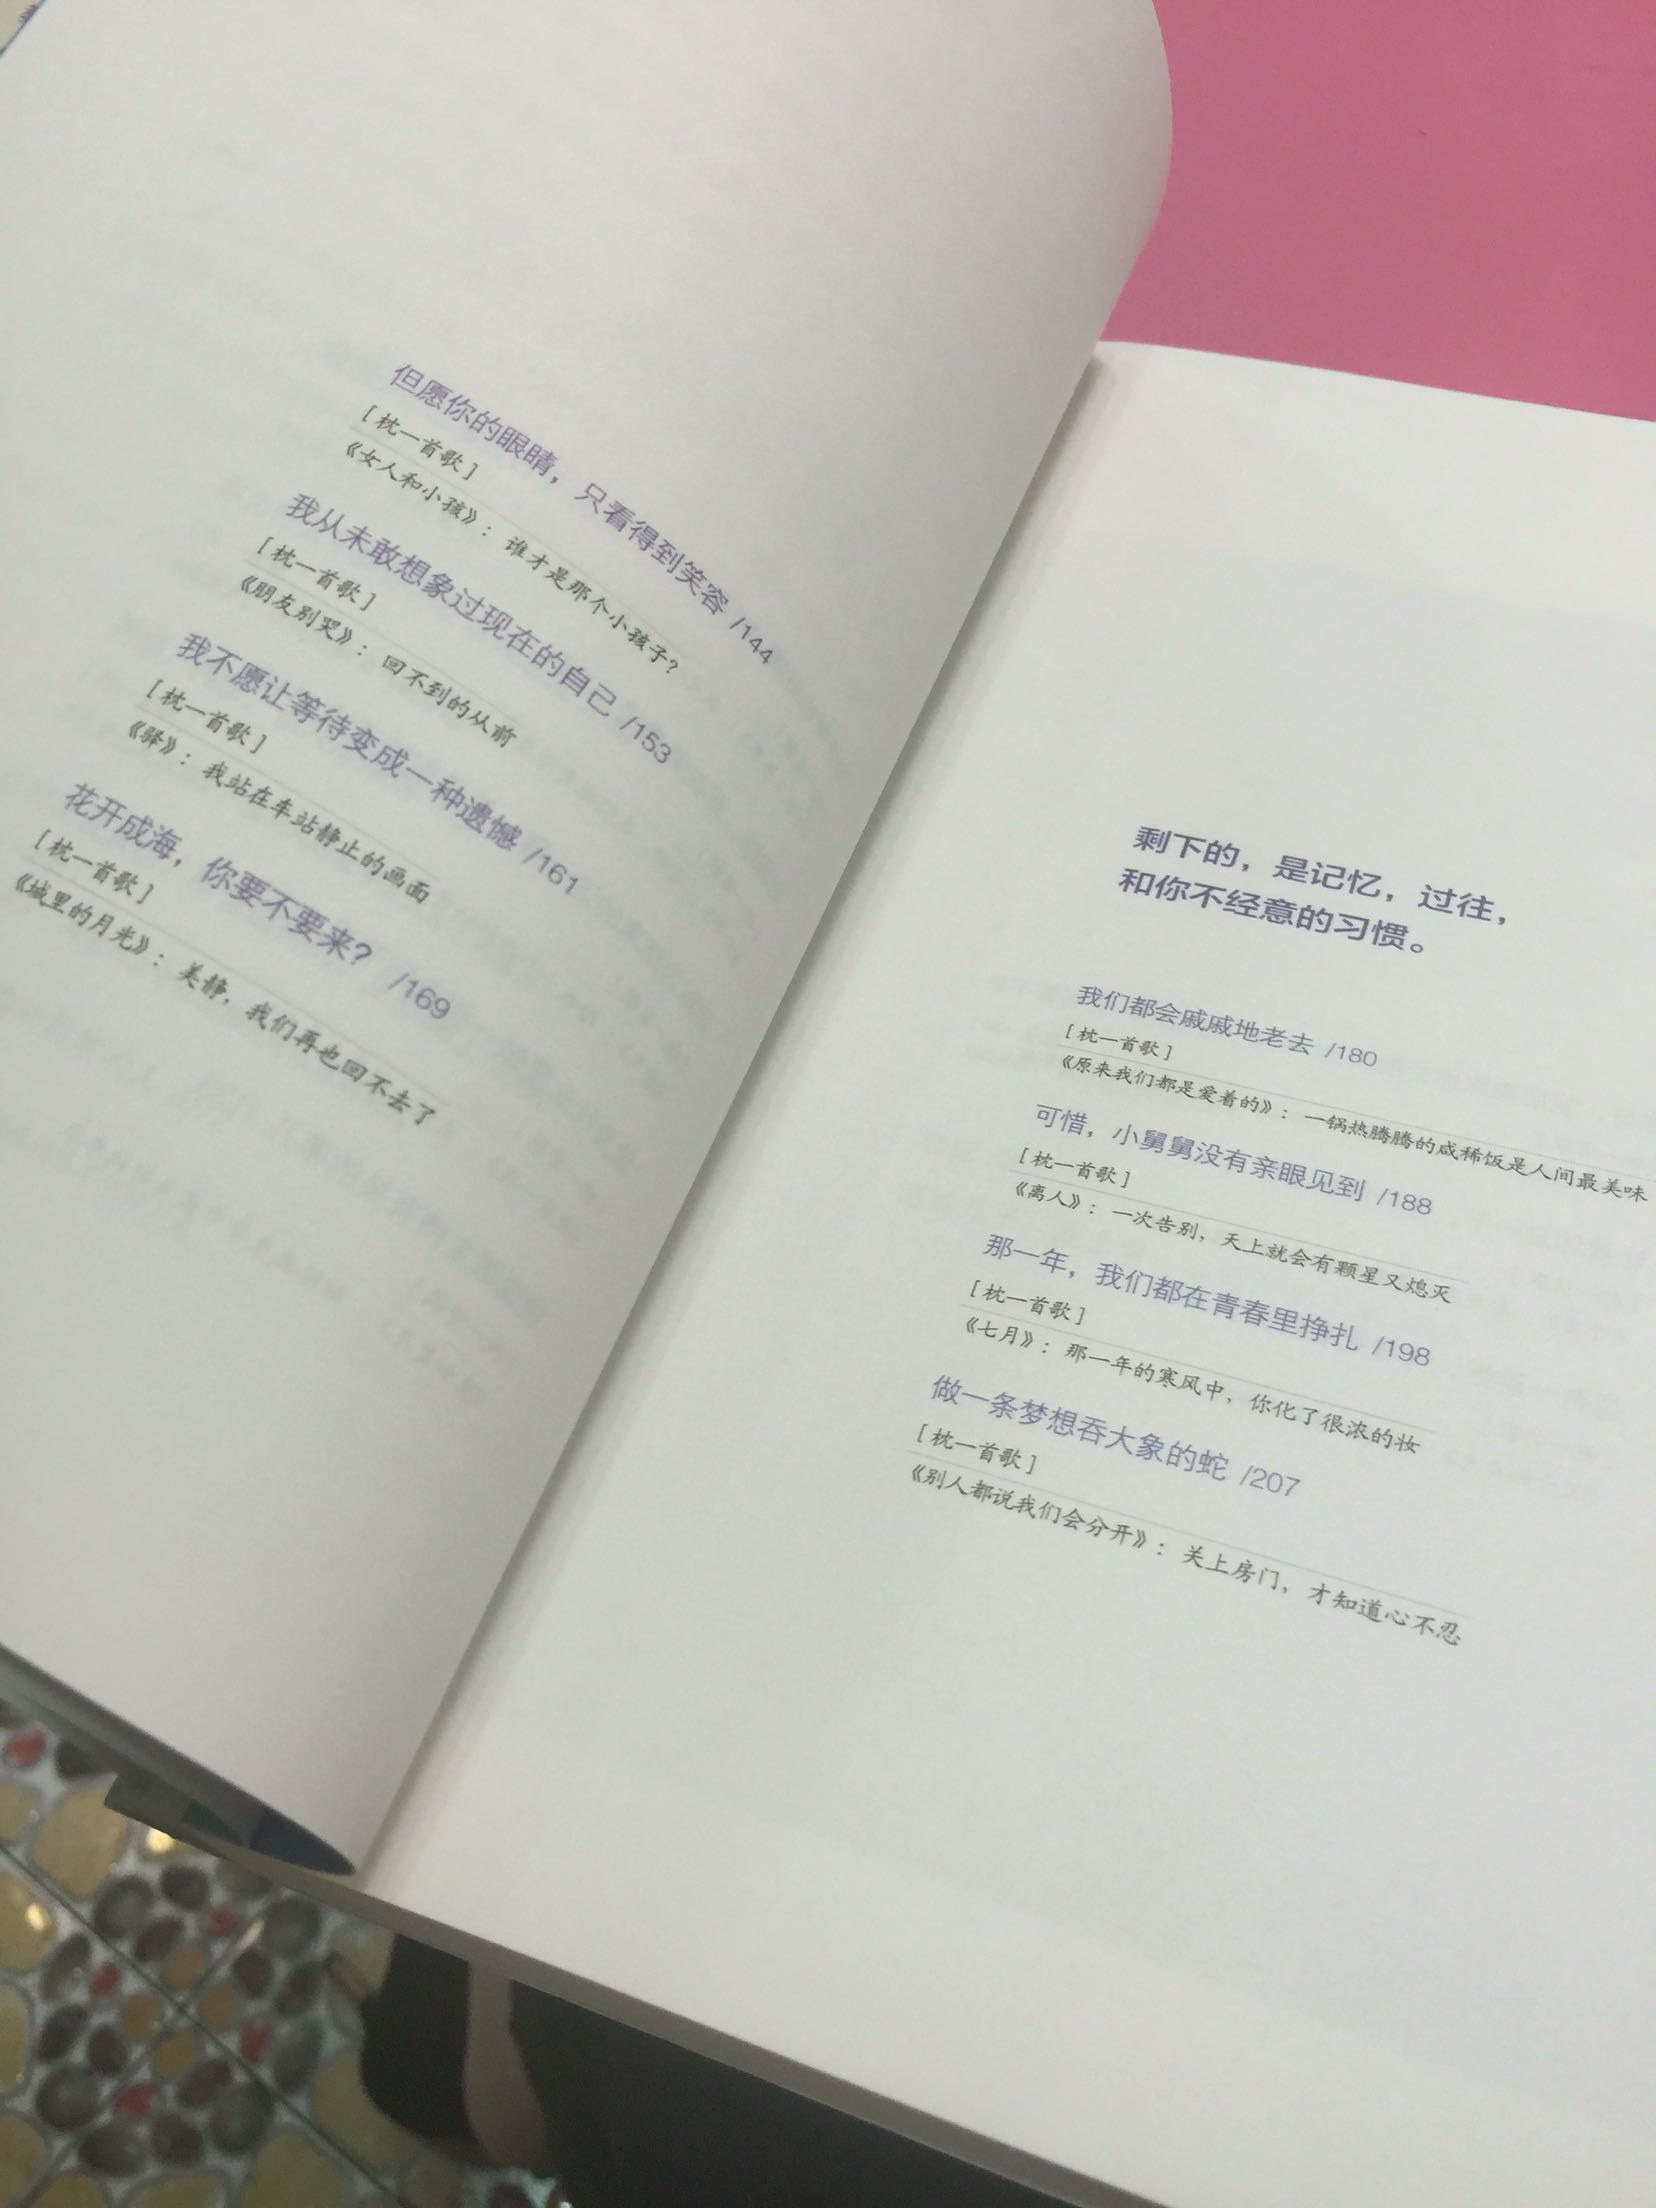 但愿你的眼睛，只看得到笑容 /144
[枕一首歌]
《女人和小孩》：谁才是那个小孩子？
我从未敢想象过现在的自己 /153
[枕一首歌]
《朋友别哭》：回不到的从前
我不愿让等待变成一种遗憾 /161
[枕一首歌]
《驿》：我站在车站静止的画面
花开成海，你要不要来？ /169
[枕一首歌]
《城里的月光》：美静，我们再也回不去了
剩下的，是记忆，过往，
和你不经意的习惯。
我们都会戚戚地老去 /180
[枕一首歌]
《原来我们都是爱着的》：一锅热腾腾的咸稀饭是人间最美味
可惜，小舅舅没有亲眼见到 /188
[枕一首歌]
《离人》：一次告别，天上就会有颗星又熄灭
那一年，我们都在青春里挣扎 /198
[枕一首歌]
《七月》：那一年的寒风中，你化了很浓的妆
做一条梦想吞大象的蛇 /207
[枕一首歌]
《别人都说我们会分开》：关上房门，才知道心不忍